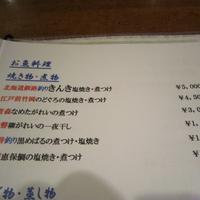 お魚料理
焼き物・煮物
北海道釧路釣りきんき塩焼き・煮つけ ¥5,000
江戸前竹岡のどぐろの塩焼き・煮つけ ¥4,50
青森なめたがれいの煮つけ ¥3,
柳がれいの一夜干し ¥1
釣り黒めばるの煮つけ・塩焼き ¥
恵保鯛の塩焼き・煮つけ ¥
物・蒸し物